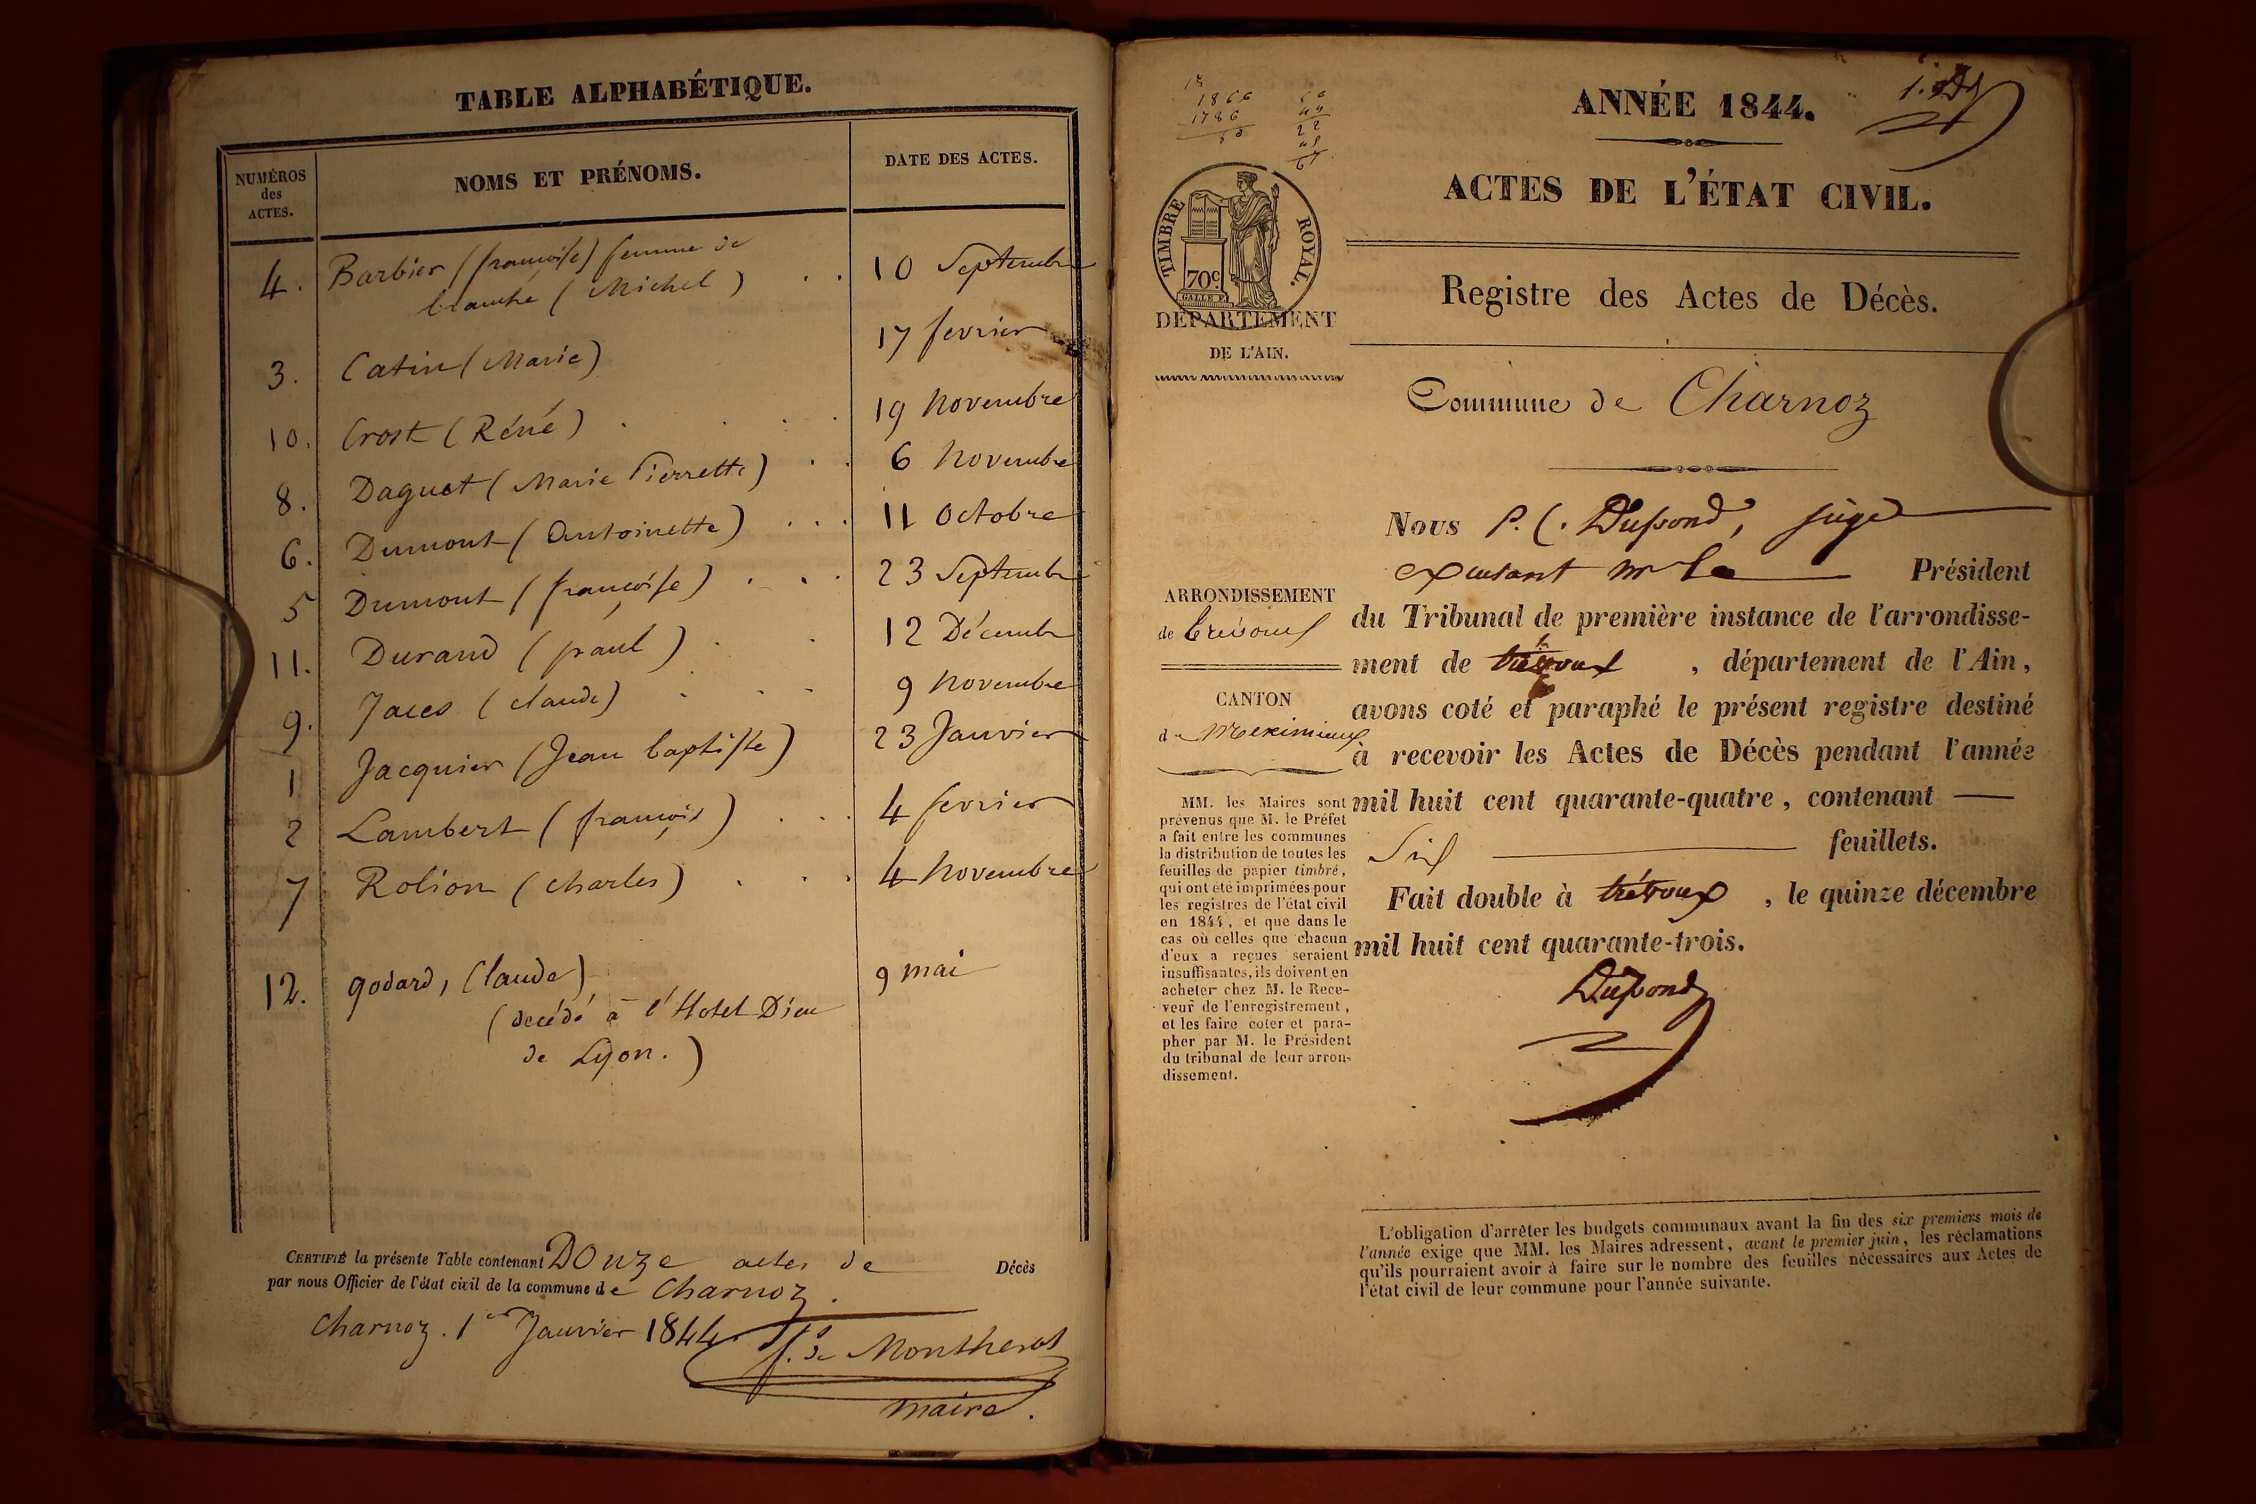 TABLE ALPHABÉTIQUE.
NUMÉROS
des
ACTES.
NOMS ET PRÉNOMS.
DATE DES ACTES.
4. Barbier (françoise) femme de
blanche (Michel) . . 10 Septembre
3. Catin (Marie) 17 fevrier
10. Crost (Réné) . . . . 19 Novembre
8. Daguet (Marie Pierrette) . . 6 Novembre
6. Dumont (Antoinette) . . . 11 Octobre
5 Dumont (françoise) . . . 23 Septembre
11. Durand (paul) . . 12 Décembre
9. (claude) . . . 9 Novembre
1 Jacquier (Jean baptiste) 23 Janvier
2 Lambert (françois) . . . 4 fevrier
7 Rolion (charles) . . . 4 Novembre
12. godard, Claude) 9 mai
(decédé à l'Hotel Dieu
de Lyon.)
CERTIFIÉ la présente Table contenant Douze actes de Décès
par nous Officier de l'état civil de la commune de Charnoz.
Charnoz. 1er Janvier 1844
f. de Montherot
maire.
1866
1786
ANNÉE 1844.
ACTES DE L'ÉTAT CIVIL.
TIMBRE ROYAL.
70c
DÉPARTEMENT
DE L'AIN.
Registre des Actes de Décès.
Commune de Charnoz
Nous P. C. Dupond, juge
excusant mr le Président
du Tribunal de première instance de l'arrondisse-
ment de trévoux, département de l'Ain,
avons coté et paraphé le présent registre destiné
à recevoir les Actes de Décès pendant l'année
mil huit cent quarante-quatre, contenant —
Six feuillets.
Fait double à trévoux, le quinze décembre
mil huit cent quarante-trois.
Dupond
ARRONDISSEMENT
de Trévoux
CANTON
de Meximieux
MM. les Maires sont
prévenus que M. le Préfet
a fait entre les communes
la distribution de toutes les
feuilles de papier timbré,
qui ont été imprimées pour
les registres de l'état civil
en 1844, et que dans le
cas où celles que chacun
d'eux a reçues seraient
insuffisantes, ils doivent en
acheter chez M. le Rece-
veur de l'enregistrement,
et les faire coter et para-
pher par M. le Président
du tribunal de leur arron-
dissement.
L'obligation d'arrêter les budgets communaux avant la fin des six premiers mois de
l'année exige que MM. les Maires adressent, avant le premier juin, les réclamations
qu'ils pourraient avoir à faire sur le nombre des feuilles nécessaires aux Actes de
l'état civil de leur commune pour l'année suivante.